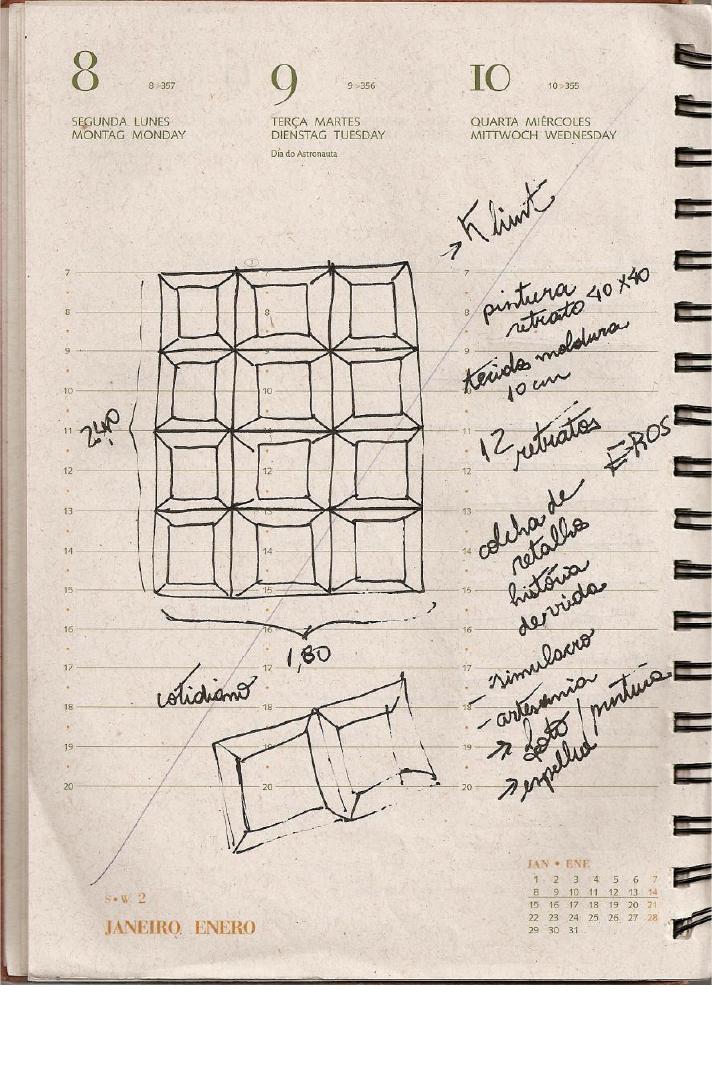 8
8>357
SEGUNDA LUNES
MONTAG MONDAY
9
9>356
TERÇA MARTES
DIENSTAG TUESDAY
Dia do Astronauta
10
10>355
QUARTA MIÉRCOLES
MITTWOCH WEDNESDAY
→ Klimt
pintura
retrato 40X40
tecido moldura
10 cm
12 retratos
EROS
colcha de
retalho
história
de vida
- simulacro
- artesania
→ foto / pintura
→ espelho
2,40
1,80
cotidiano
7 7 7
8 8 8
9 9
10 10 10
11 11 11
12 12 12
13 13 13
14 14 14
15 15 15
16 16 16
17 17 17
18 18
19 19 19
20 20 20
S•W 2
JANEIRO ENERO
JAN • ENE
1 2 3 4 5 6 7
8 9 10 11 12 13 14
15 16 17 18 19 20 21
22 23 24 25 26 27 28
29 30 31